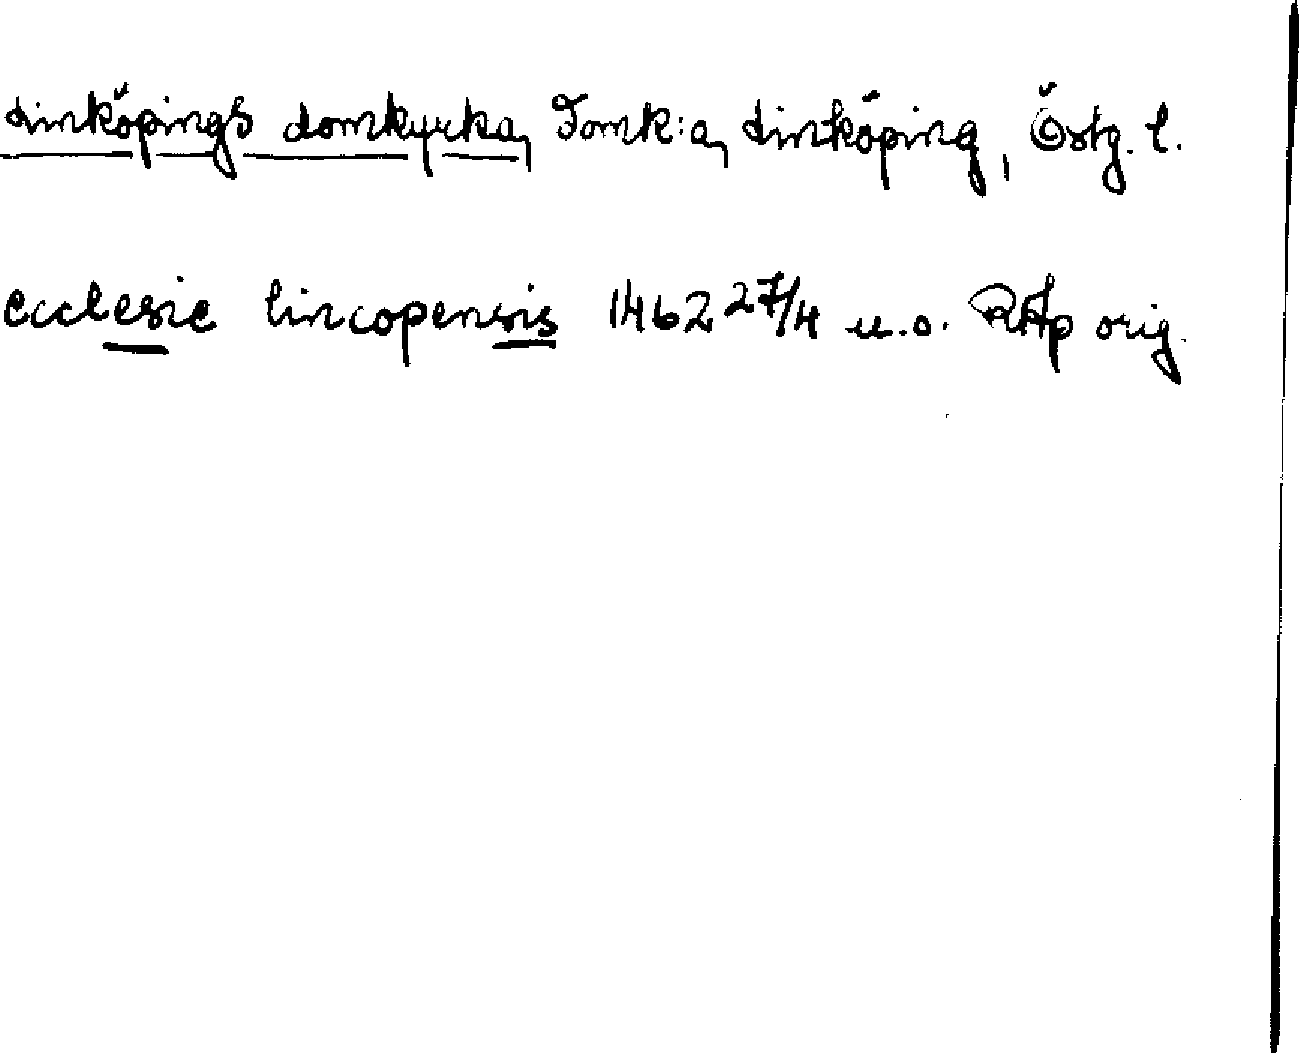 Linköpings domkyrka, Domk:a, Linköping, Östg. l.
ecclesie lincopensis 1462 27/4 u.o. RAp orig.